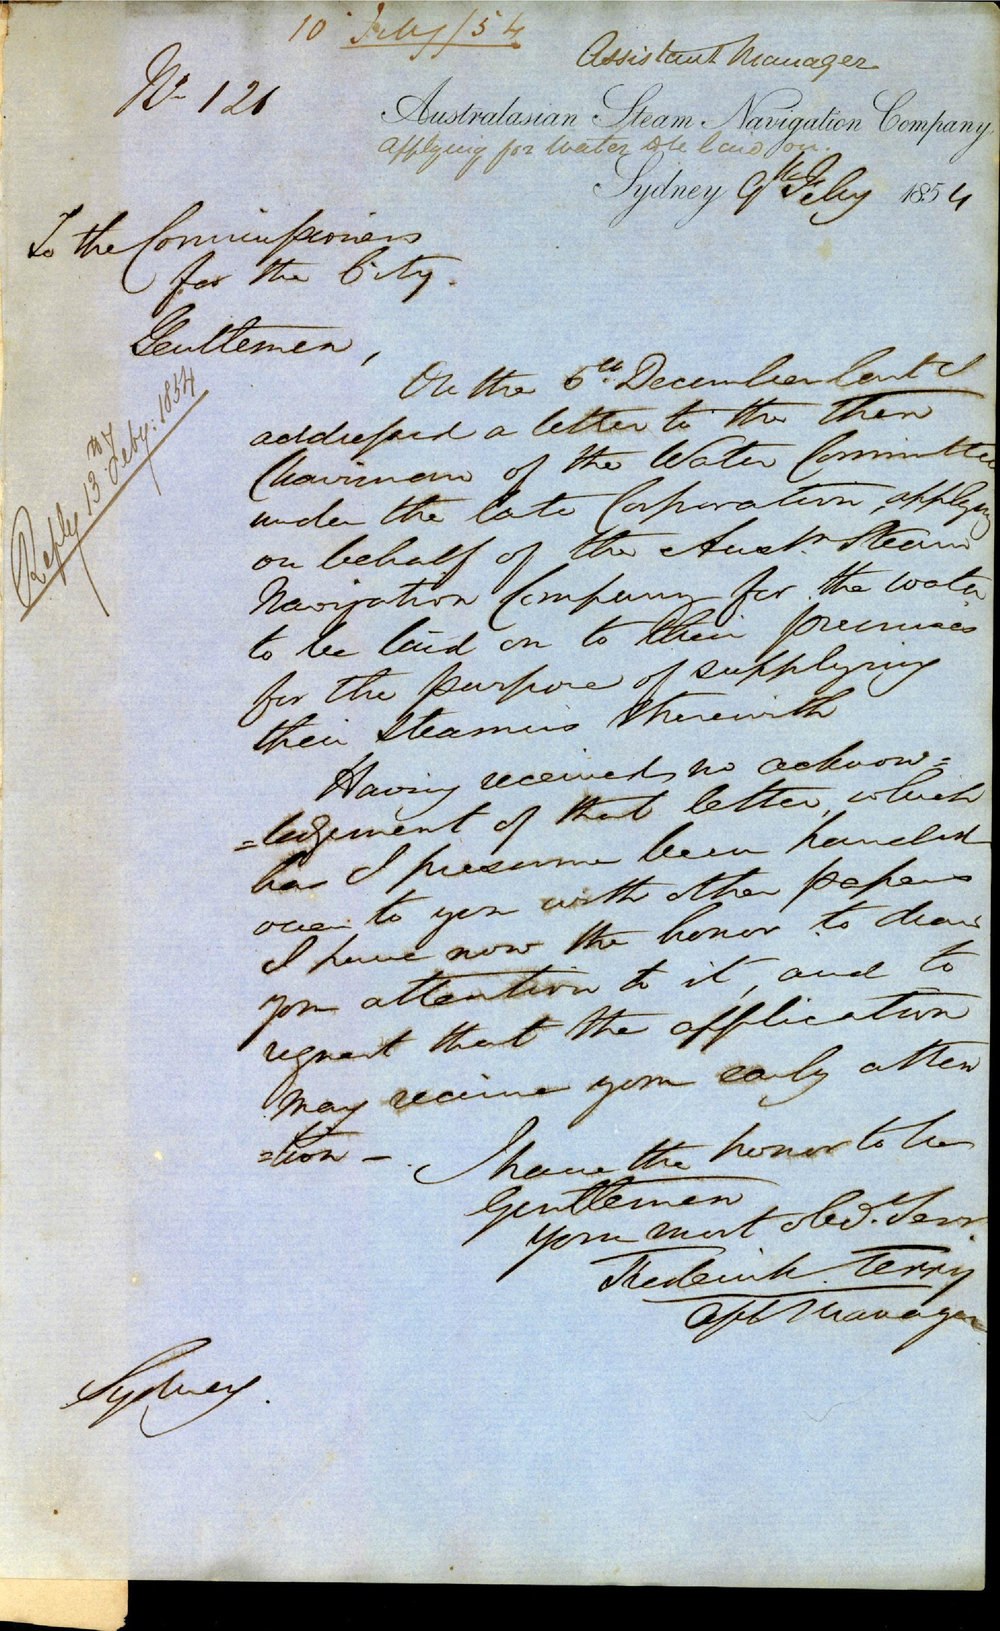 10 Feby /54
Assistant Manager
No 121
Australasian Steam Navigation Company
Applying for Water to be laid on.
Sydney 9th Feby 1854
To the Commissioners
for the City.
Gentlemen,
Reply 13 Feby: 1854
On the 6th December last I
addressed a letter to the then
Chairman of the Water Committee
under the late Corporation, applying
on behalf of the Austn Steam
Navigation Company for the water
to be laid on to their premises
for the purpose of supplying
their Steamers therewith
Having received no acknow=
=ledgement of that letter, which
has I presume been handed
over to you with other papers
I have now the honor to draw
your attention to it, and to
request that the application
may receive your early atten
=tion -.
I have the honor to be
Gentlemen
Your most obedt. Servt
Frederick Terry
Asst Manager
Sydney.